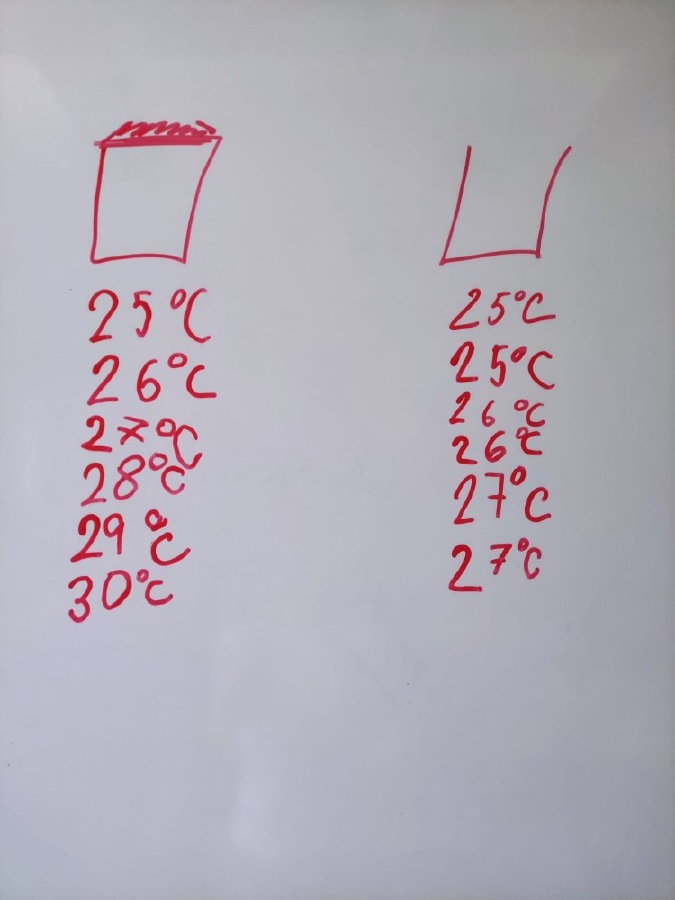 25°C
26°C
27°C
28°C
29°C
30°C
25°C
25°C
26°C
26°C
27°C
27°C